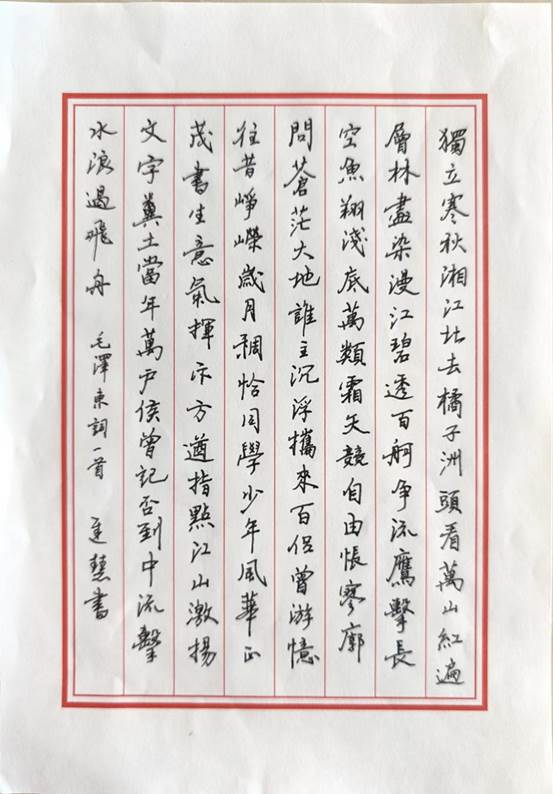 獨立寒秋湘江北去橘子洲頭看萬山紅遍
層林盡染漫江碧透百舸争流鷹擊長
空魚翔淺底萬類霜天競自由悵寥廓
問蒼茫大地誰主沉浮攜來百侣曾游憶
往昔崢嶸歲月稠恰同學少年風華正
茂書生意氣揮斥方遒指點江山激揚
文字糞土當年萬户侯曾記否到中流擊
水浪遏飛舟 毛澤東詞一首 慧書